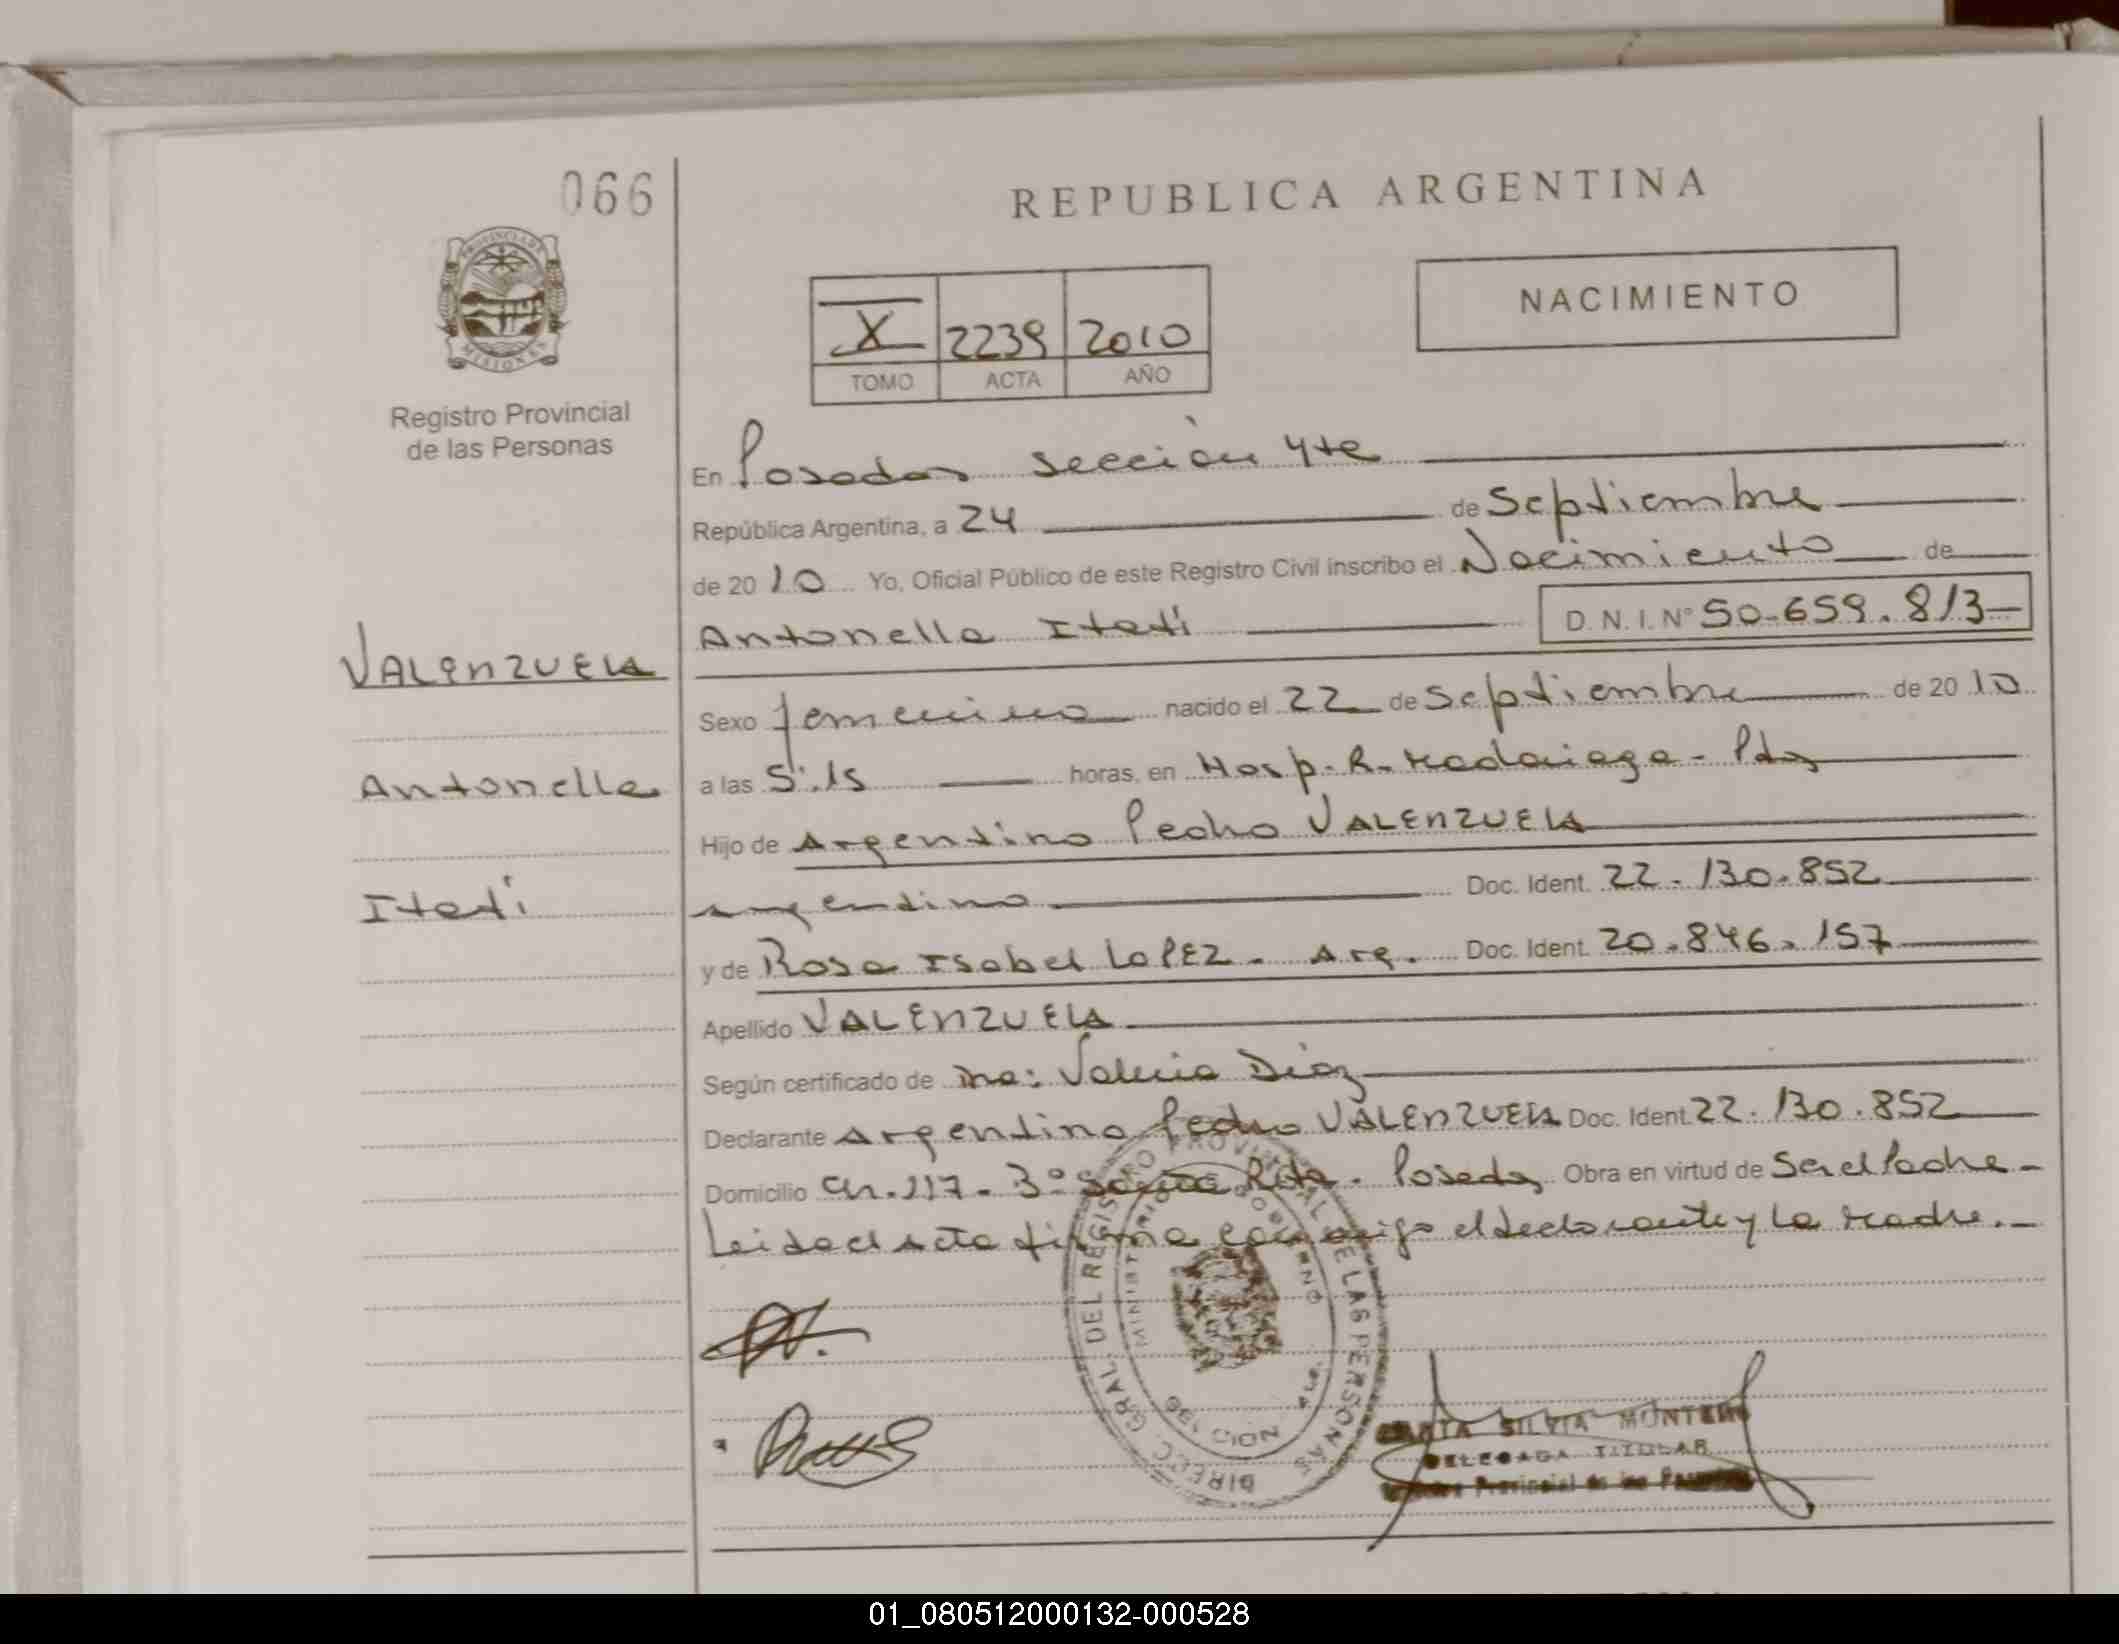 066
REPUBLICA ARGENTINA
PROVINCIA DE
MISIONES
Registro Provincial
de las Personas
X 2239 2010
TOMO ACTA AÑO
NACIMIENTO
En Posadas sección 4ta
República Argentina, a 24 de Septiembre
de 20 10 Yo, Oficial Público de este Registro Civil inscribo el Nacimiento de
Antonella Itatí D. N. I. Nº 50-659.813
VALENZUELA
Antonella
Itatí
Sexo femenino nacido el 22 de Septiembre de 20 10
a las 5:15 horas, en Hosp. R. Madariaga - Pdas
Hijo de Argentino Pedro VALENZUELA
argentino Doc. Ident. 22.130.852
y de Rosa Isabel LOPEZ - Arg. Doc. Ident. 20.846.157
Apellido VALENZUELA
Según certificado de Dra: Valeria Díaz
Declarante Argentino Pedro VALENZUELA Doc. Ident. 22.130.852
Domicilio Ch. 117 - 3º Santa Rita - Posadas Obra en virtud de Ser el Padre -
Leida el Acta firma conmigo el declarante y la Madre.-
DIREC. GRAL. DEL REGISTRO PROVINCIAL DE LAS PERSONAS
MINISTERIO GOBIERNO
SILVIA MONTERO
DELEGADA TITULAR
Provincial de las
01_080512000132-000528